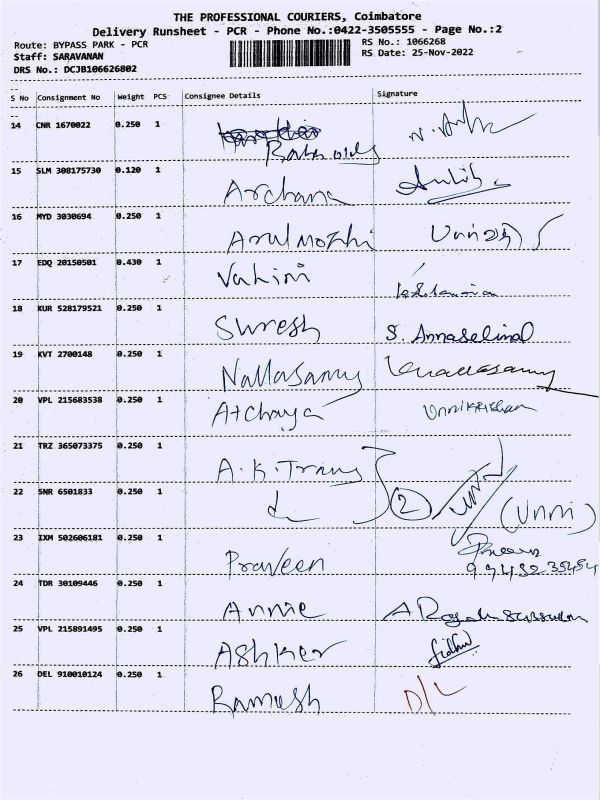 THE PROFESSIONAL COURIERS, Coimbatore
Delivery Runsheet - PCR - Phone No.:0422-3505555 - Page No.:2
Route: BYPASS PARK - PCR RS No.: 1066268
Staff: SARAVANAN RS Date: 25-Nov-2022
DRS No.: DCJB106626802
S No Consignment No Weight PCS Consignee Details Signature
14 CNR 1670022 0.250 1
15 SLM 308175730 0.120 1 Archana
16 MYD 3030694 0.250 1 Arulmozhi
17 EDQ 20150501 0.430 1 Vahini
18 KUR 528179521 0.250 1 Suresh S. Annaselinal
19 KVT 2700148 0.250 1 Nallasamy
20 VPL 215683538 0.250 1 Atchaya Unnikrishnan
21 TRZ 365073375 0.250 1 A.K. Trans
22 SNR 6501833 0.250 1 2 (Unni)
23 IXM 502606181 0.250 1 Praveen
24 TDR 30109446 0.250 1 Annie A
25 VPL 215891495 0.250 1 Ashker Sidhu
26 DEL 910010124 0.250 1 Ramesh D/L